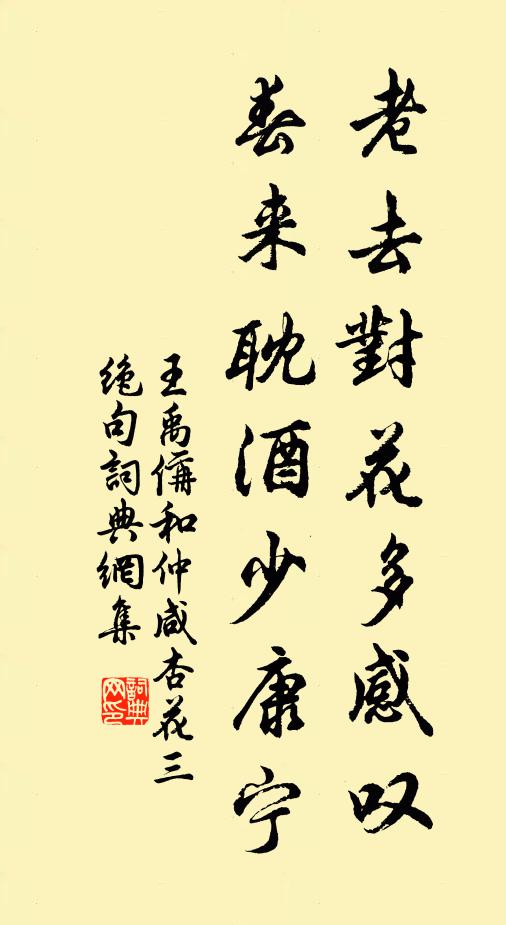 老去對花多感叹
春来耽酒少康宁
王禹偁和仲咸杏花三
绝句詞典網集
詞典网印